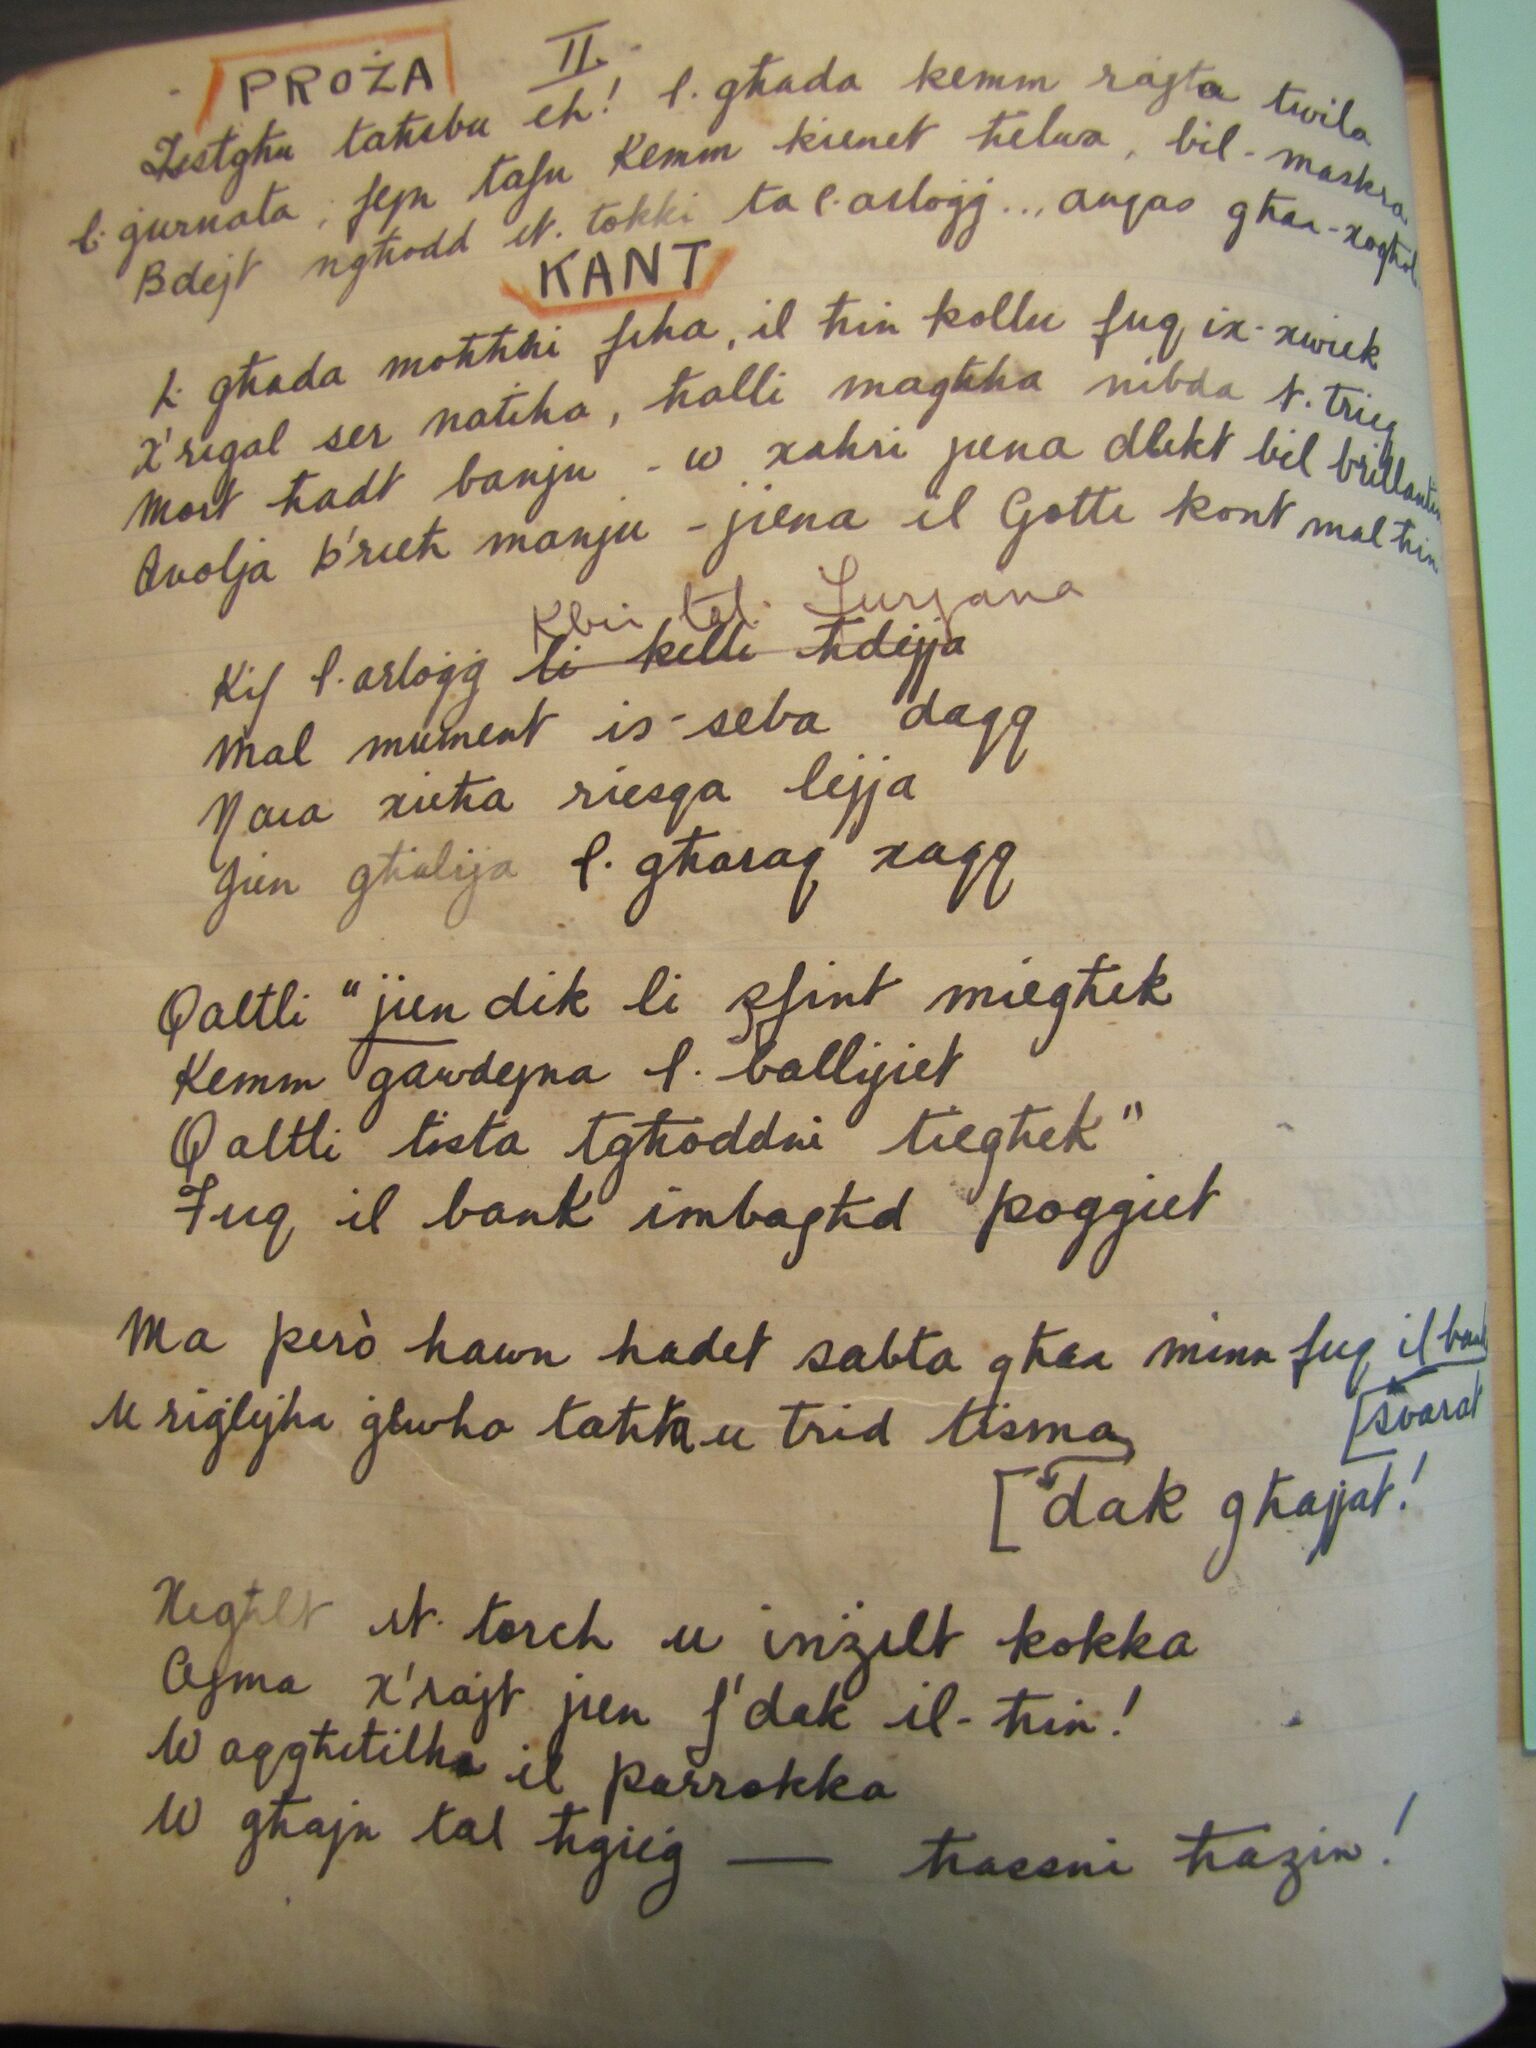 PROŻA
II.
Tistgħu taħsbu eh! l. għada kemm rajta twila
l. ġurnata, fejn tafu kemm kienet ħelwa, bil-maskra
Bdejt ngħodd it. tokki ta l. arloġġ... anqas għax-xogħol
KANT
L. għada moħħhi fiha, il ħin kollu fuq ix-xwiek
X'rigal ser natiha, ħalli magħha nibda t. triq
Mort ħadt banju - w xahri jiena dlikt bil brillantin
Avolja b'rieħ manju - jiena il Gotti kont mal ħin
Kbir tal. Furjana
Kif l. arloġġ li killi ħdejja
Mal mument is-seba daqq
Nara xieħa riesqa lejja
Jien għalija l. għaraq xaqq
Qaltli "jien dik li żfint miegħek
Kemm gawdejna l. ballijiet
Qaltli tista tgħoddni tiegħek"
Fuq il bank imbagħd poġġiet
Ma però hawn hadet sabta għax minn fuq il bank
[żvarat
U riġlejha ġewho taħta u trid tisma
[dak għajjat!
Xegħilt it. torch u inżilt kokka
Ajma x'rajt jien f'dak il-ħin!
W aqgħetilha il parrokka
W għajn tal ħġieġ — ħassni ħażin!